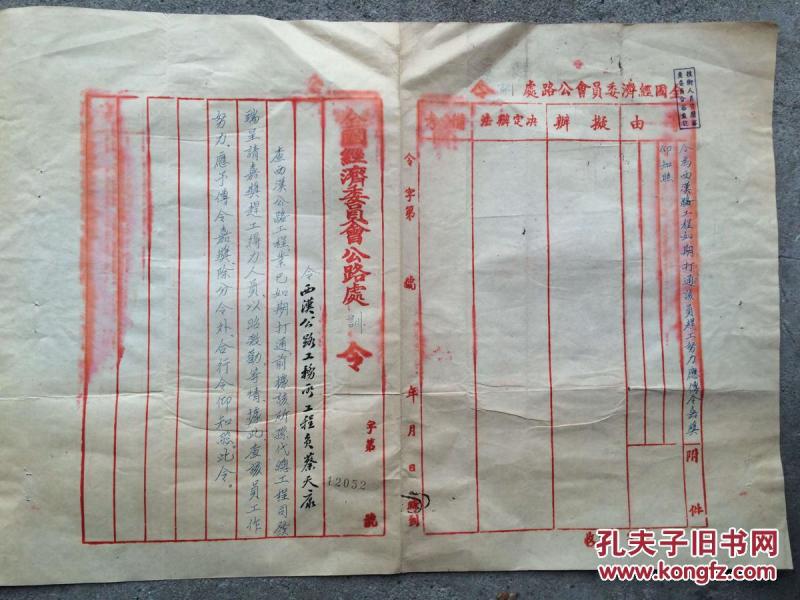 全國經濟委員會公路處
由
擬辦
決定辦法
令為西漢路工程如期打通該員趕工努力應傳令嘉獎
仰知照
附件
令 字第 號 年 月 日 時到
全國經濟委員會公路處訓令
字第12052號
令西漢公路工務所工程員蔡天
查西漢公路工程業已如期打通前據該所孫代總工程司發
端呈請嘉獎趕工得力人員以昭激勸等情據此查該員工作
努力應予傳令嘉獎除分令外合行令仰知照此令。
孔夫子旧书网
www.kongfz.com